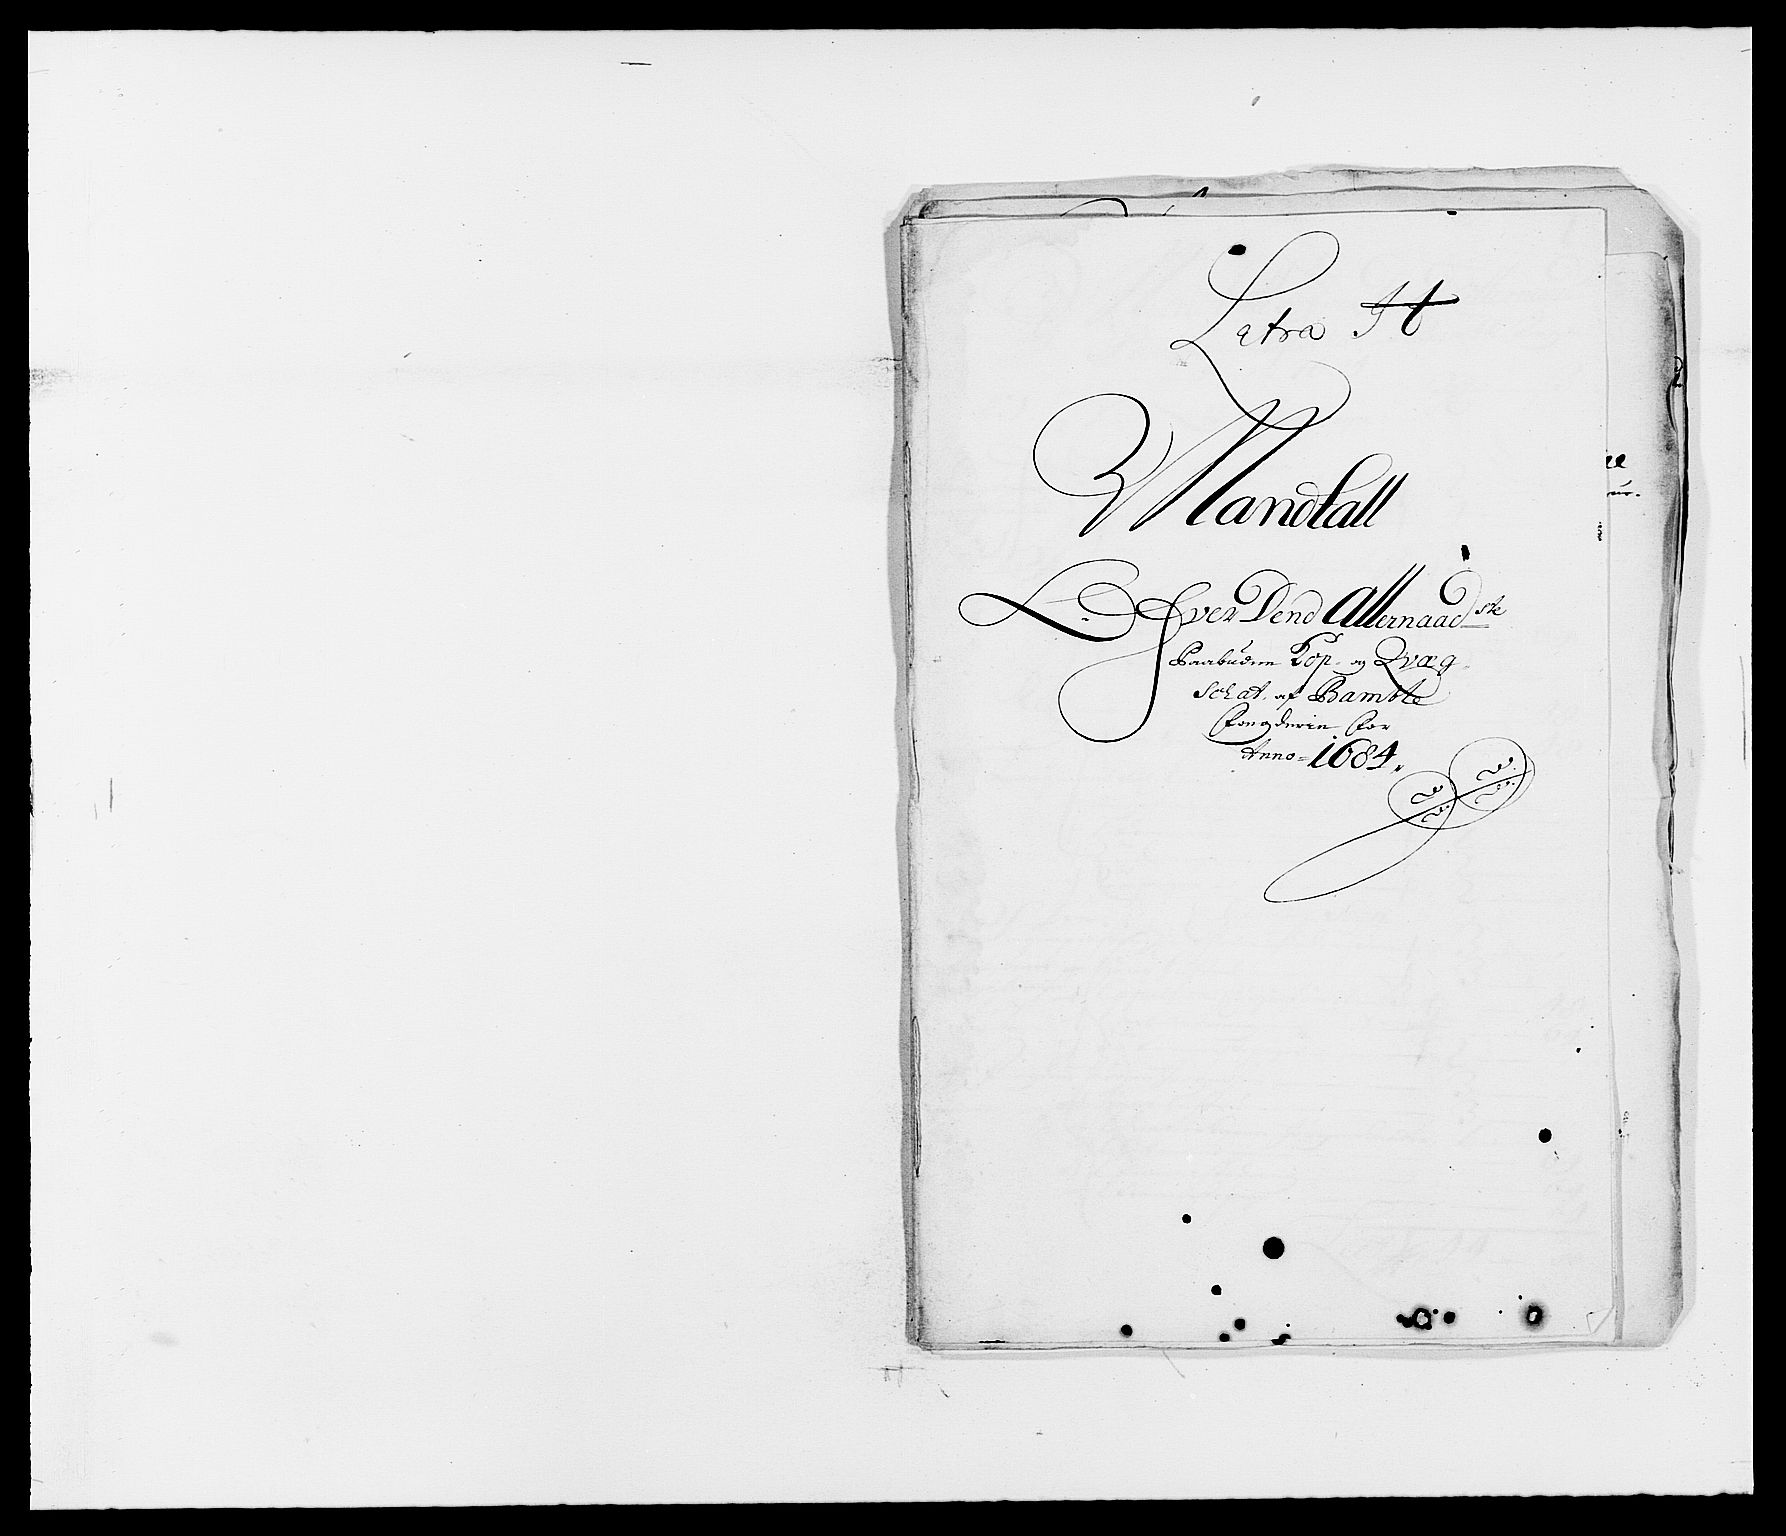 Letra H
Mandtall
Ofver Dend Allernaadste
Paabudene Kop- og Qvæg-
Schat af Bamble
Fougderie for
Anno 1684